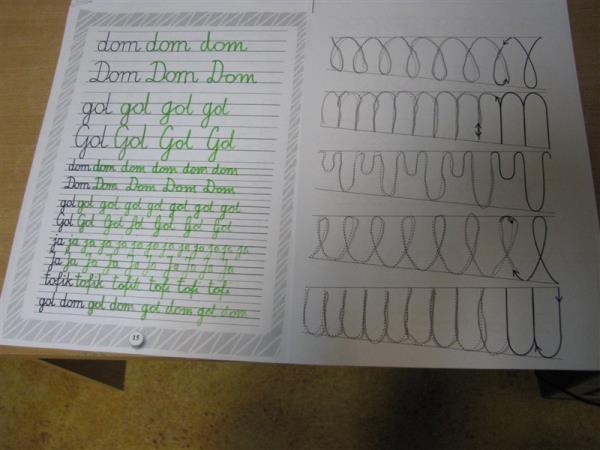 dom dom dom
Dom Dom Dom
gol gol gol gol
Gol Gol Gol Gol
dom dom dom dom dom dom
Dom Dom Dom Dom Dom
gol gol gol gol gol gol gol gol
Gol Gol Gol Gol Gol Gol Gol
ja ja ja ja ja ja ja ja ja ja ja
Ja Ja Ja Ja Ja Ja Ja Ja
tofik tofik tofik tofi tofi tofi
gol dom gol dom gol dom gol dom
15